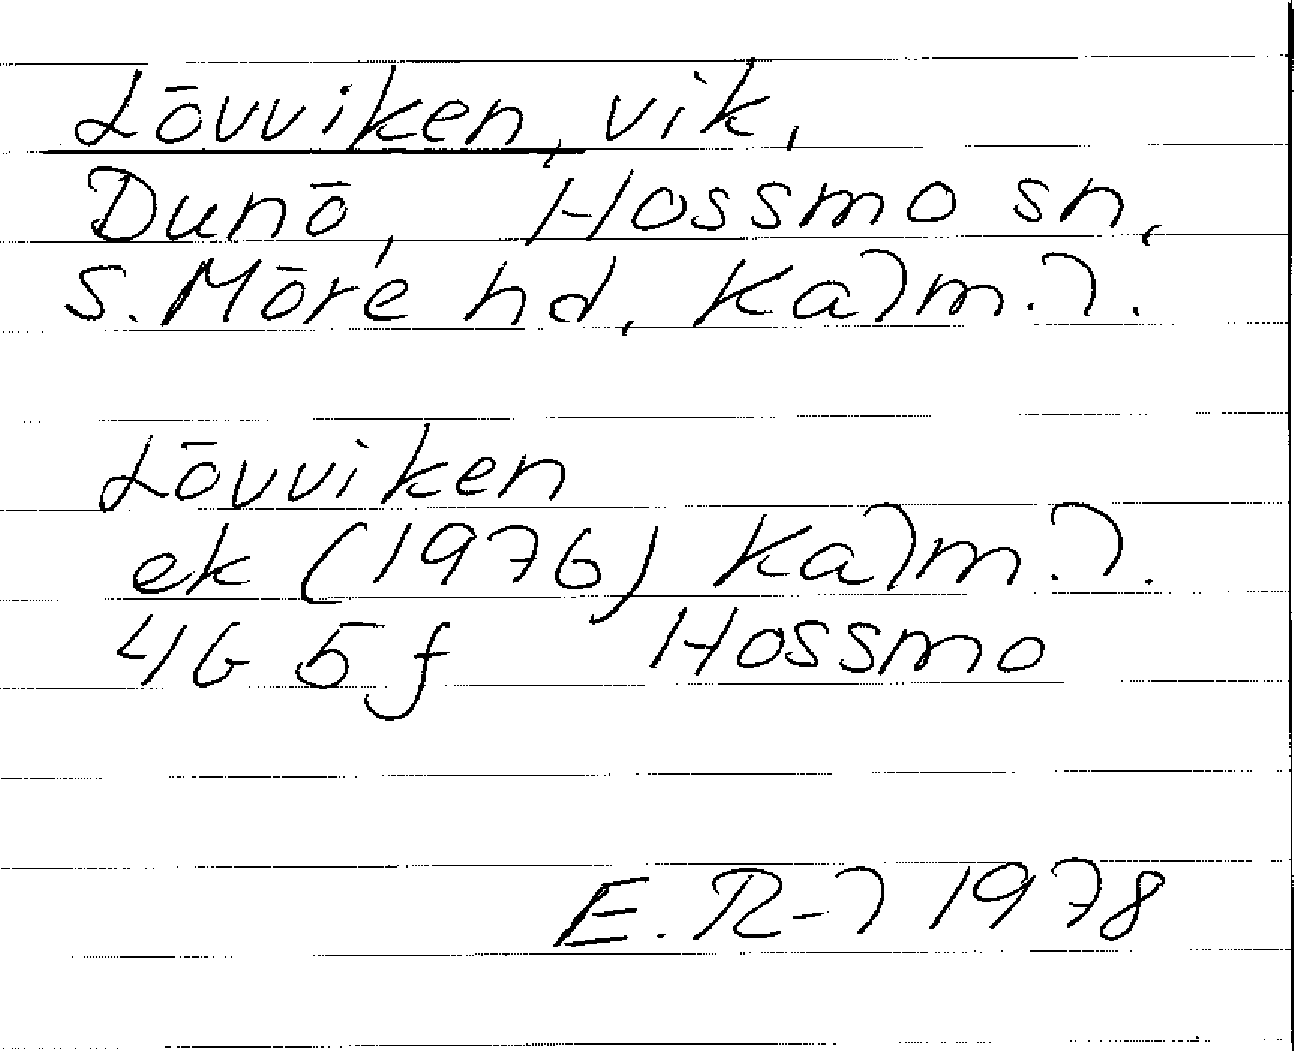 Lövviken, vik,
Dunö, Hossmo sn,
S. Möre hd, Kalm. l.
Lövviken
ek (1976) Kalm. l.
4G 5f Hossmo
E. R-l 1978